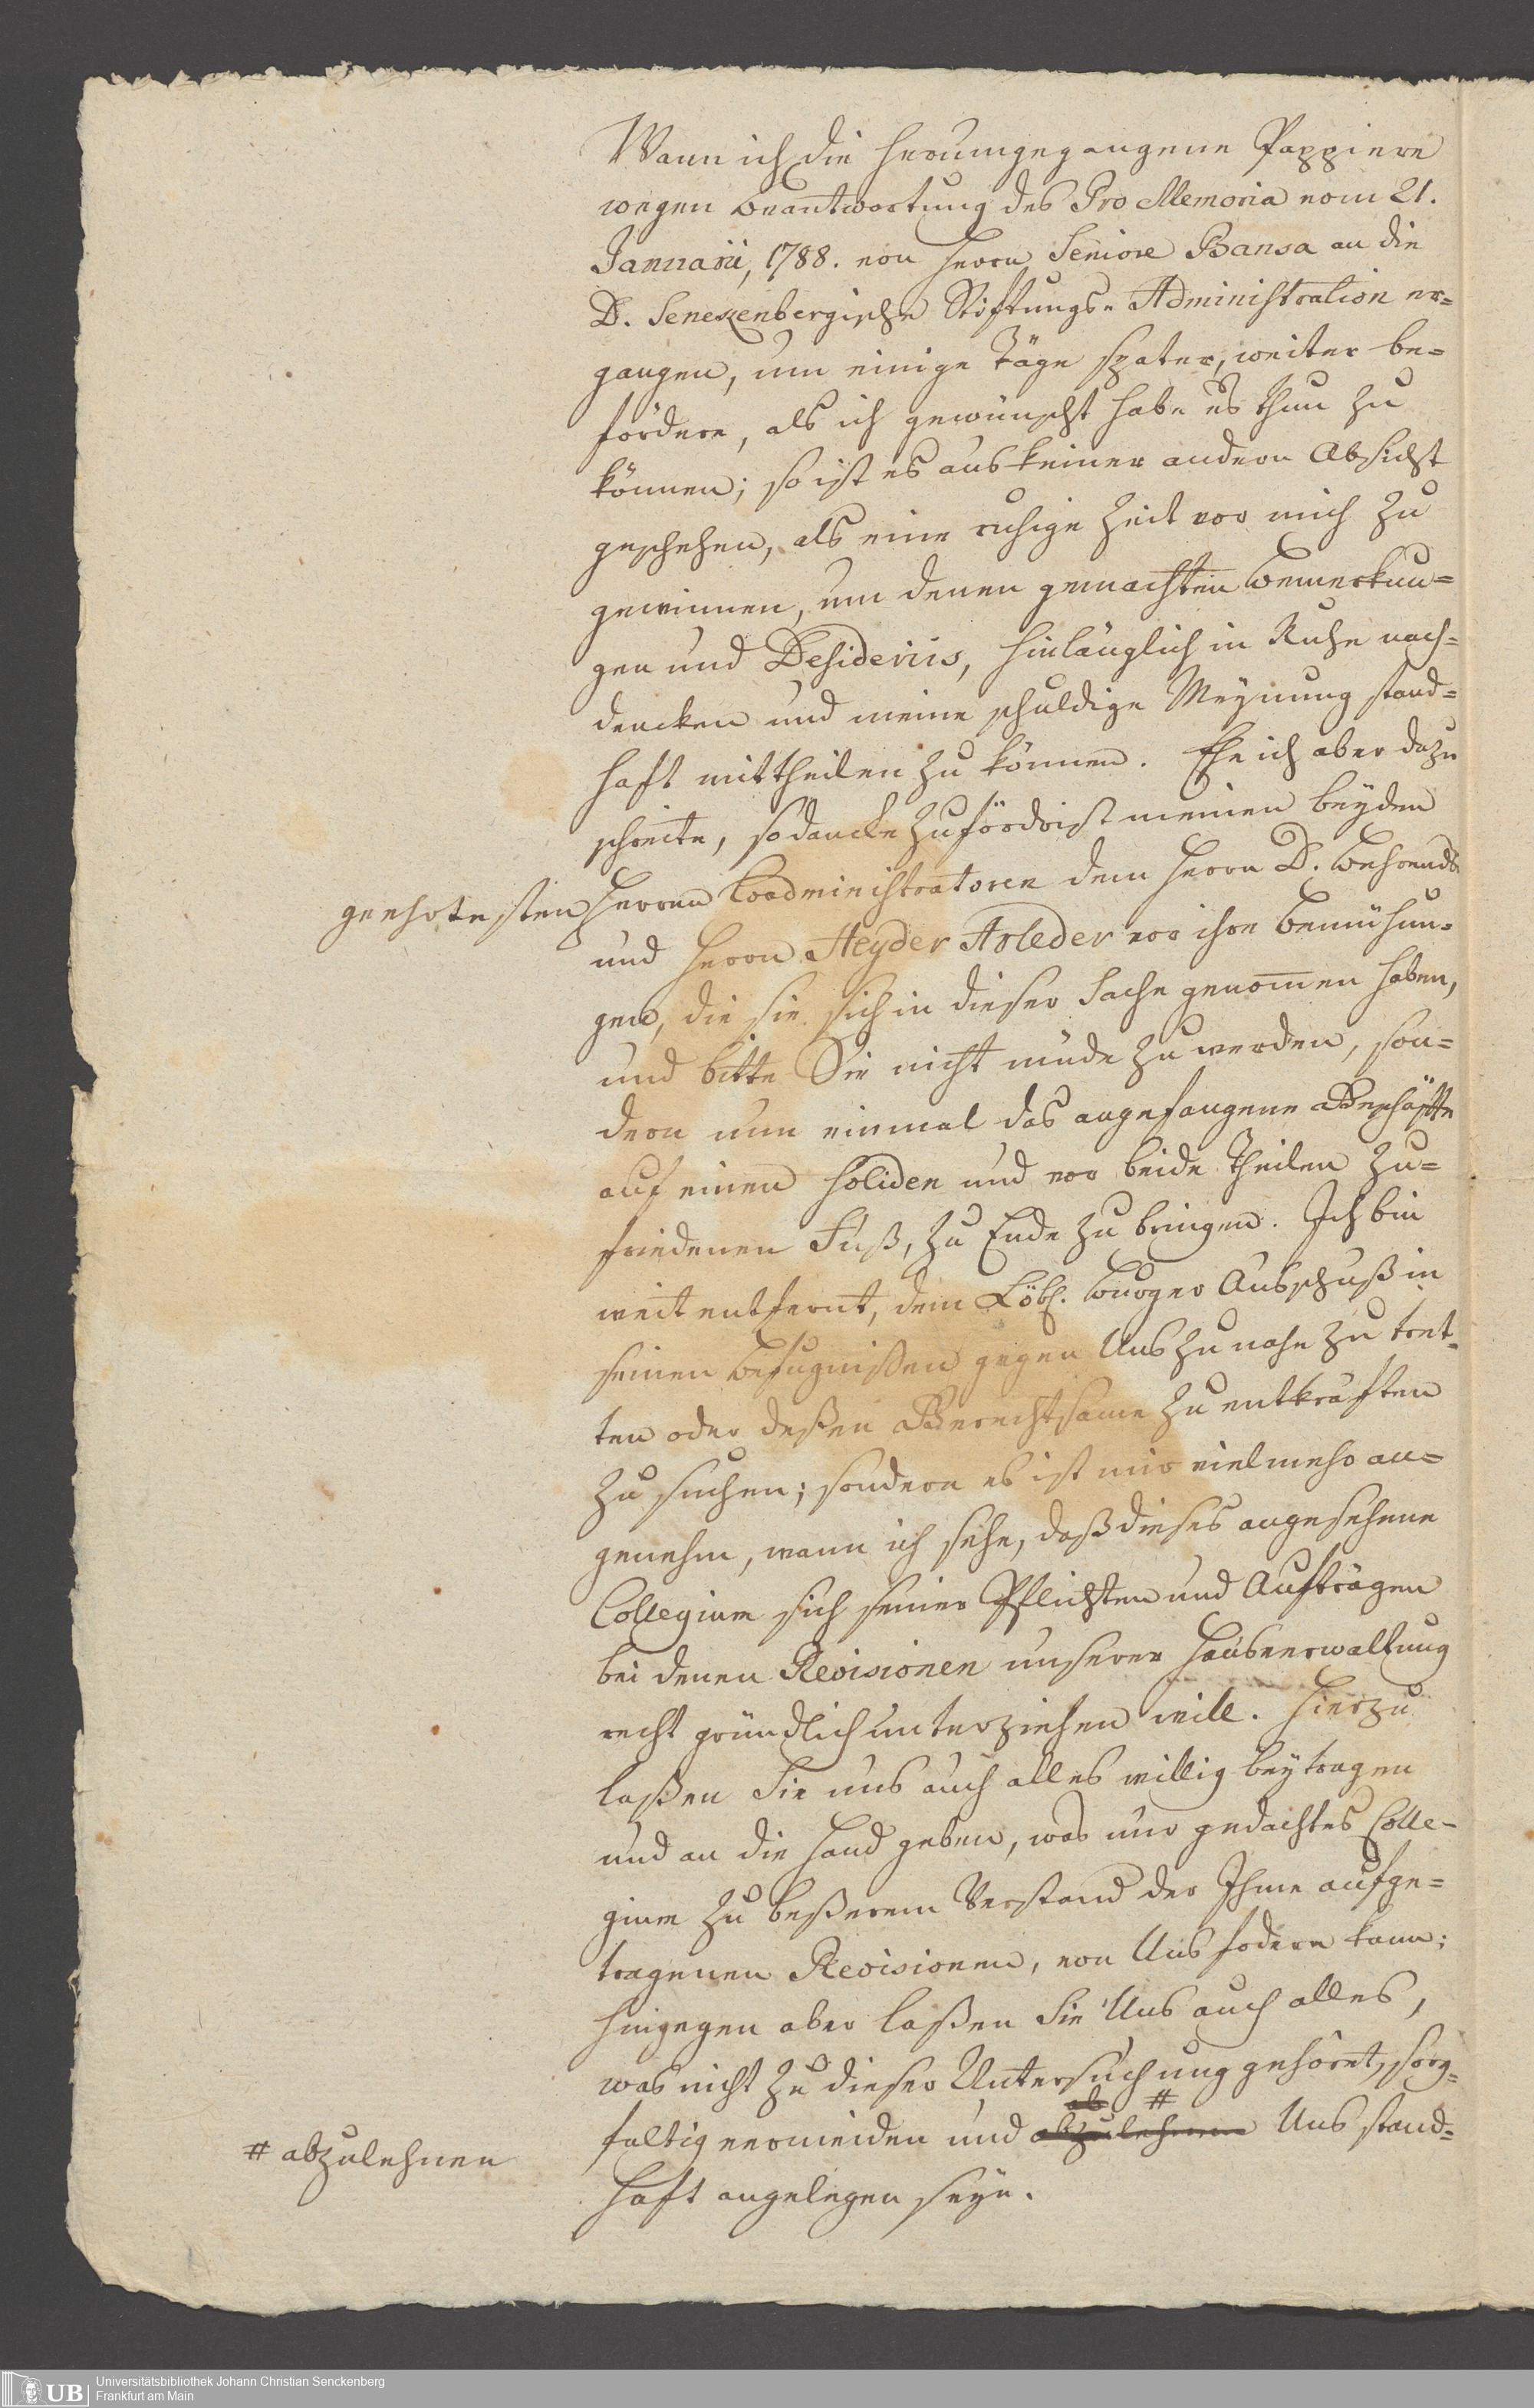 Wann ich die herumgegangene Pappiere
wegen Beantwortung des Pro Memoria vom 21.
Januarii, 1788. von Herrn Seniore Bansa an die
D. Senckenbergische Stiftungs-Administration er=
gangen, um einige Täge spater, weiter be=
fördere, als ich gewünscht habe es thun zu
können; so ist es aus keiner andern Absicht
geschehen, als eine ruhige Zeit vor mich zu
gewinnen, um denen gemachten Bemerkun=
gen und Desideriis, hinlänglich in Ruhe nach=
dencken und meine schuldige Meynung stand=
haft mittheilen zu können. Ehe ich aber dazu
schreite, so dancke zuförderist meinen beyden
geehrtesten Herren Coadministratoren dem Herrn D. Behrends
und Herrn Heyder Arleder vor ihre Bemühun=
gen, die sie sich in dieser Sache genommen haben,
und bitte Sie nicht müde zu werden, son=
dern nun einmal das angefangene Geschäfte
auf einen soliden und vor beide Theilen zu=
friedenen Fuß, zu Ende zu bringen. Ich bin
weit entfernt, dem Löbl. Burger Ausschuß in
seinen Befugnißen gegen Uns zu nahe zu tret=
ten oder deßen Gerechtsame zu entkräften
zu suchen; sondern es ist mir vielmehr an=
genehm, wann ich sehe, daß dieses angesehene
Collegium sich seiner Pflichten und Aufträgen
bei denen Revisionen unserer Hausverwaltung
recht gründlich unterziehen will. Hierzu
laßen Sie uns auch alles willig beytragen
und an die Hand geben, was nur gedachtes Colle-
gium zu beßerem Verstand der Ihme aufge=
tragenen Revisionen, von Uns fodern kann;
hingegen aber laßen Sie Uns auch alles,
was nicht zu dieser Untersuchung gehöret, sorg=
faltig vermeiden und ab abzulehnen # Uns stand=
# abzulehnen
haft angelegen seyn.
UB
Universitätsbibliothek Johann Christian Senckenberg
Frankfurt am Main